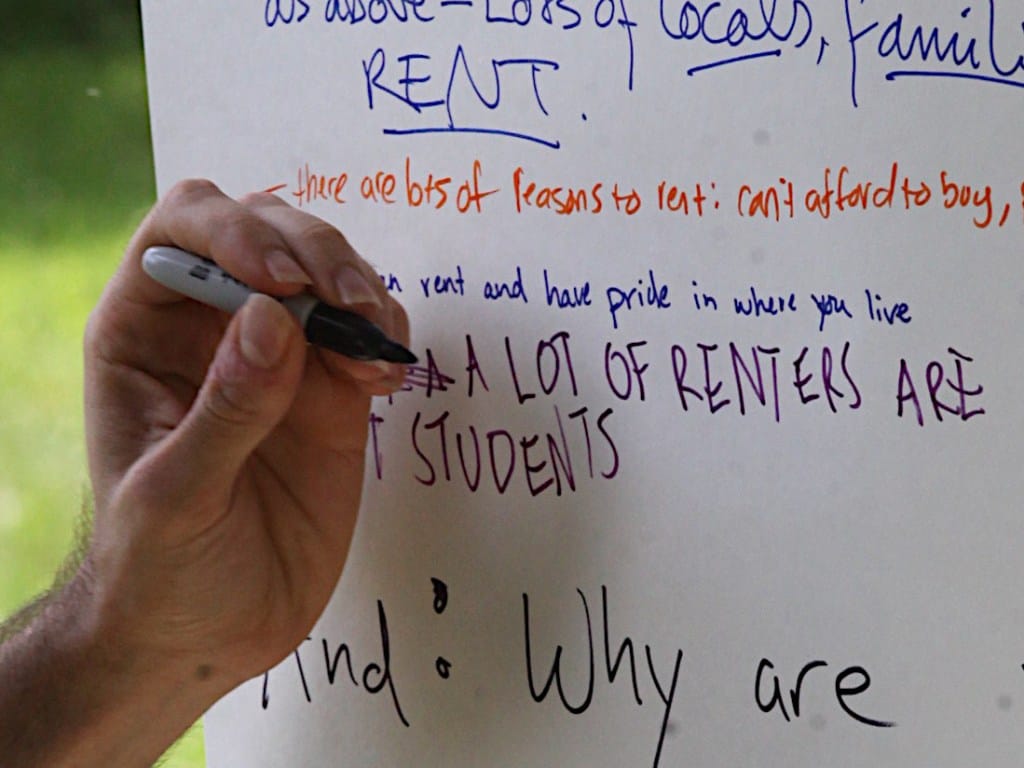 as above - Loss of locals, famili
RENT.
- there are lots of reasons to rent: can't afford to buy,
n rent and have pride in where you live
A LOT OF RENTERS ARE
T STUDENTS
And: Why are